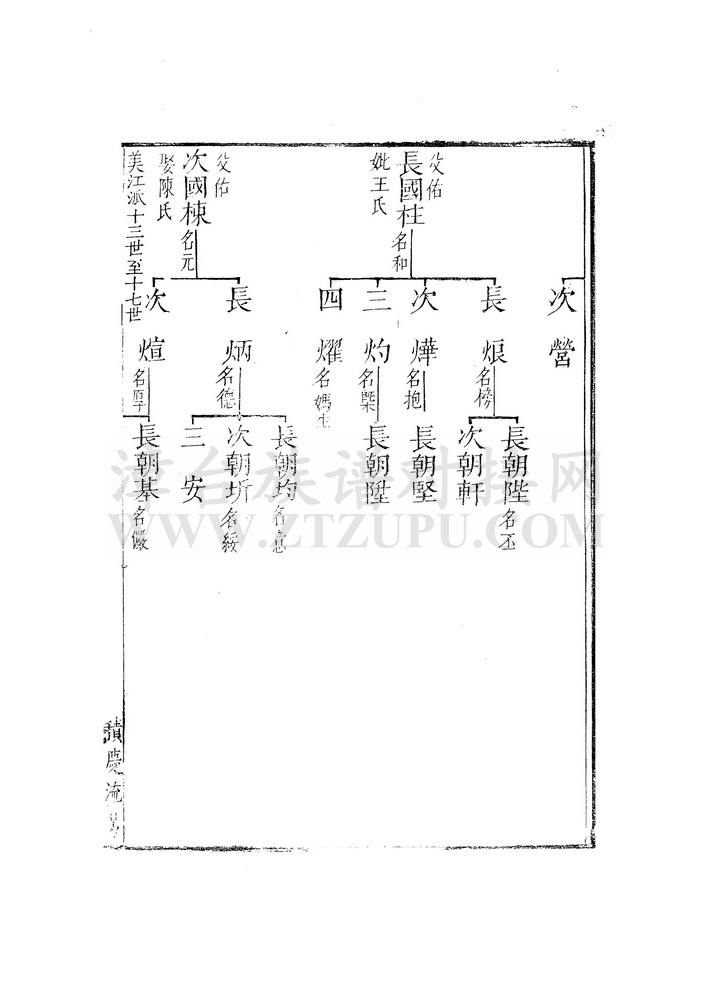 次營
父佑
長國柱名和
妣王氏
長烺名榜
次燁名抱
三灼名槩
四燿名媽生
長朝陛名丕
次朝軒
長朝堅
長朝陞
父佑
次國棟名元
娶陳氏
長炳名德
次煊名厚
長朝均名意
次朝圻名綏
三安
長朝基名儼
美江派十三世至十七世
積慶流芳
漳台族谱对接网
WWW.ZTZUPU.COM